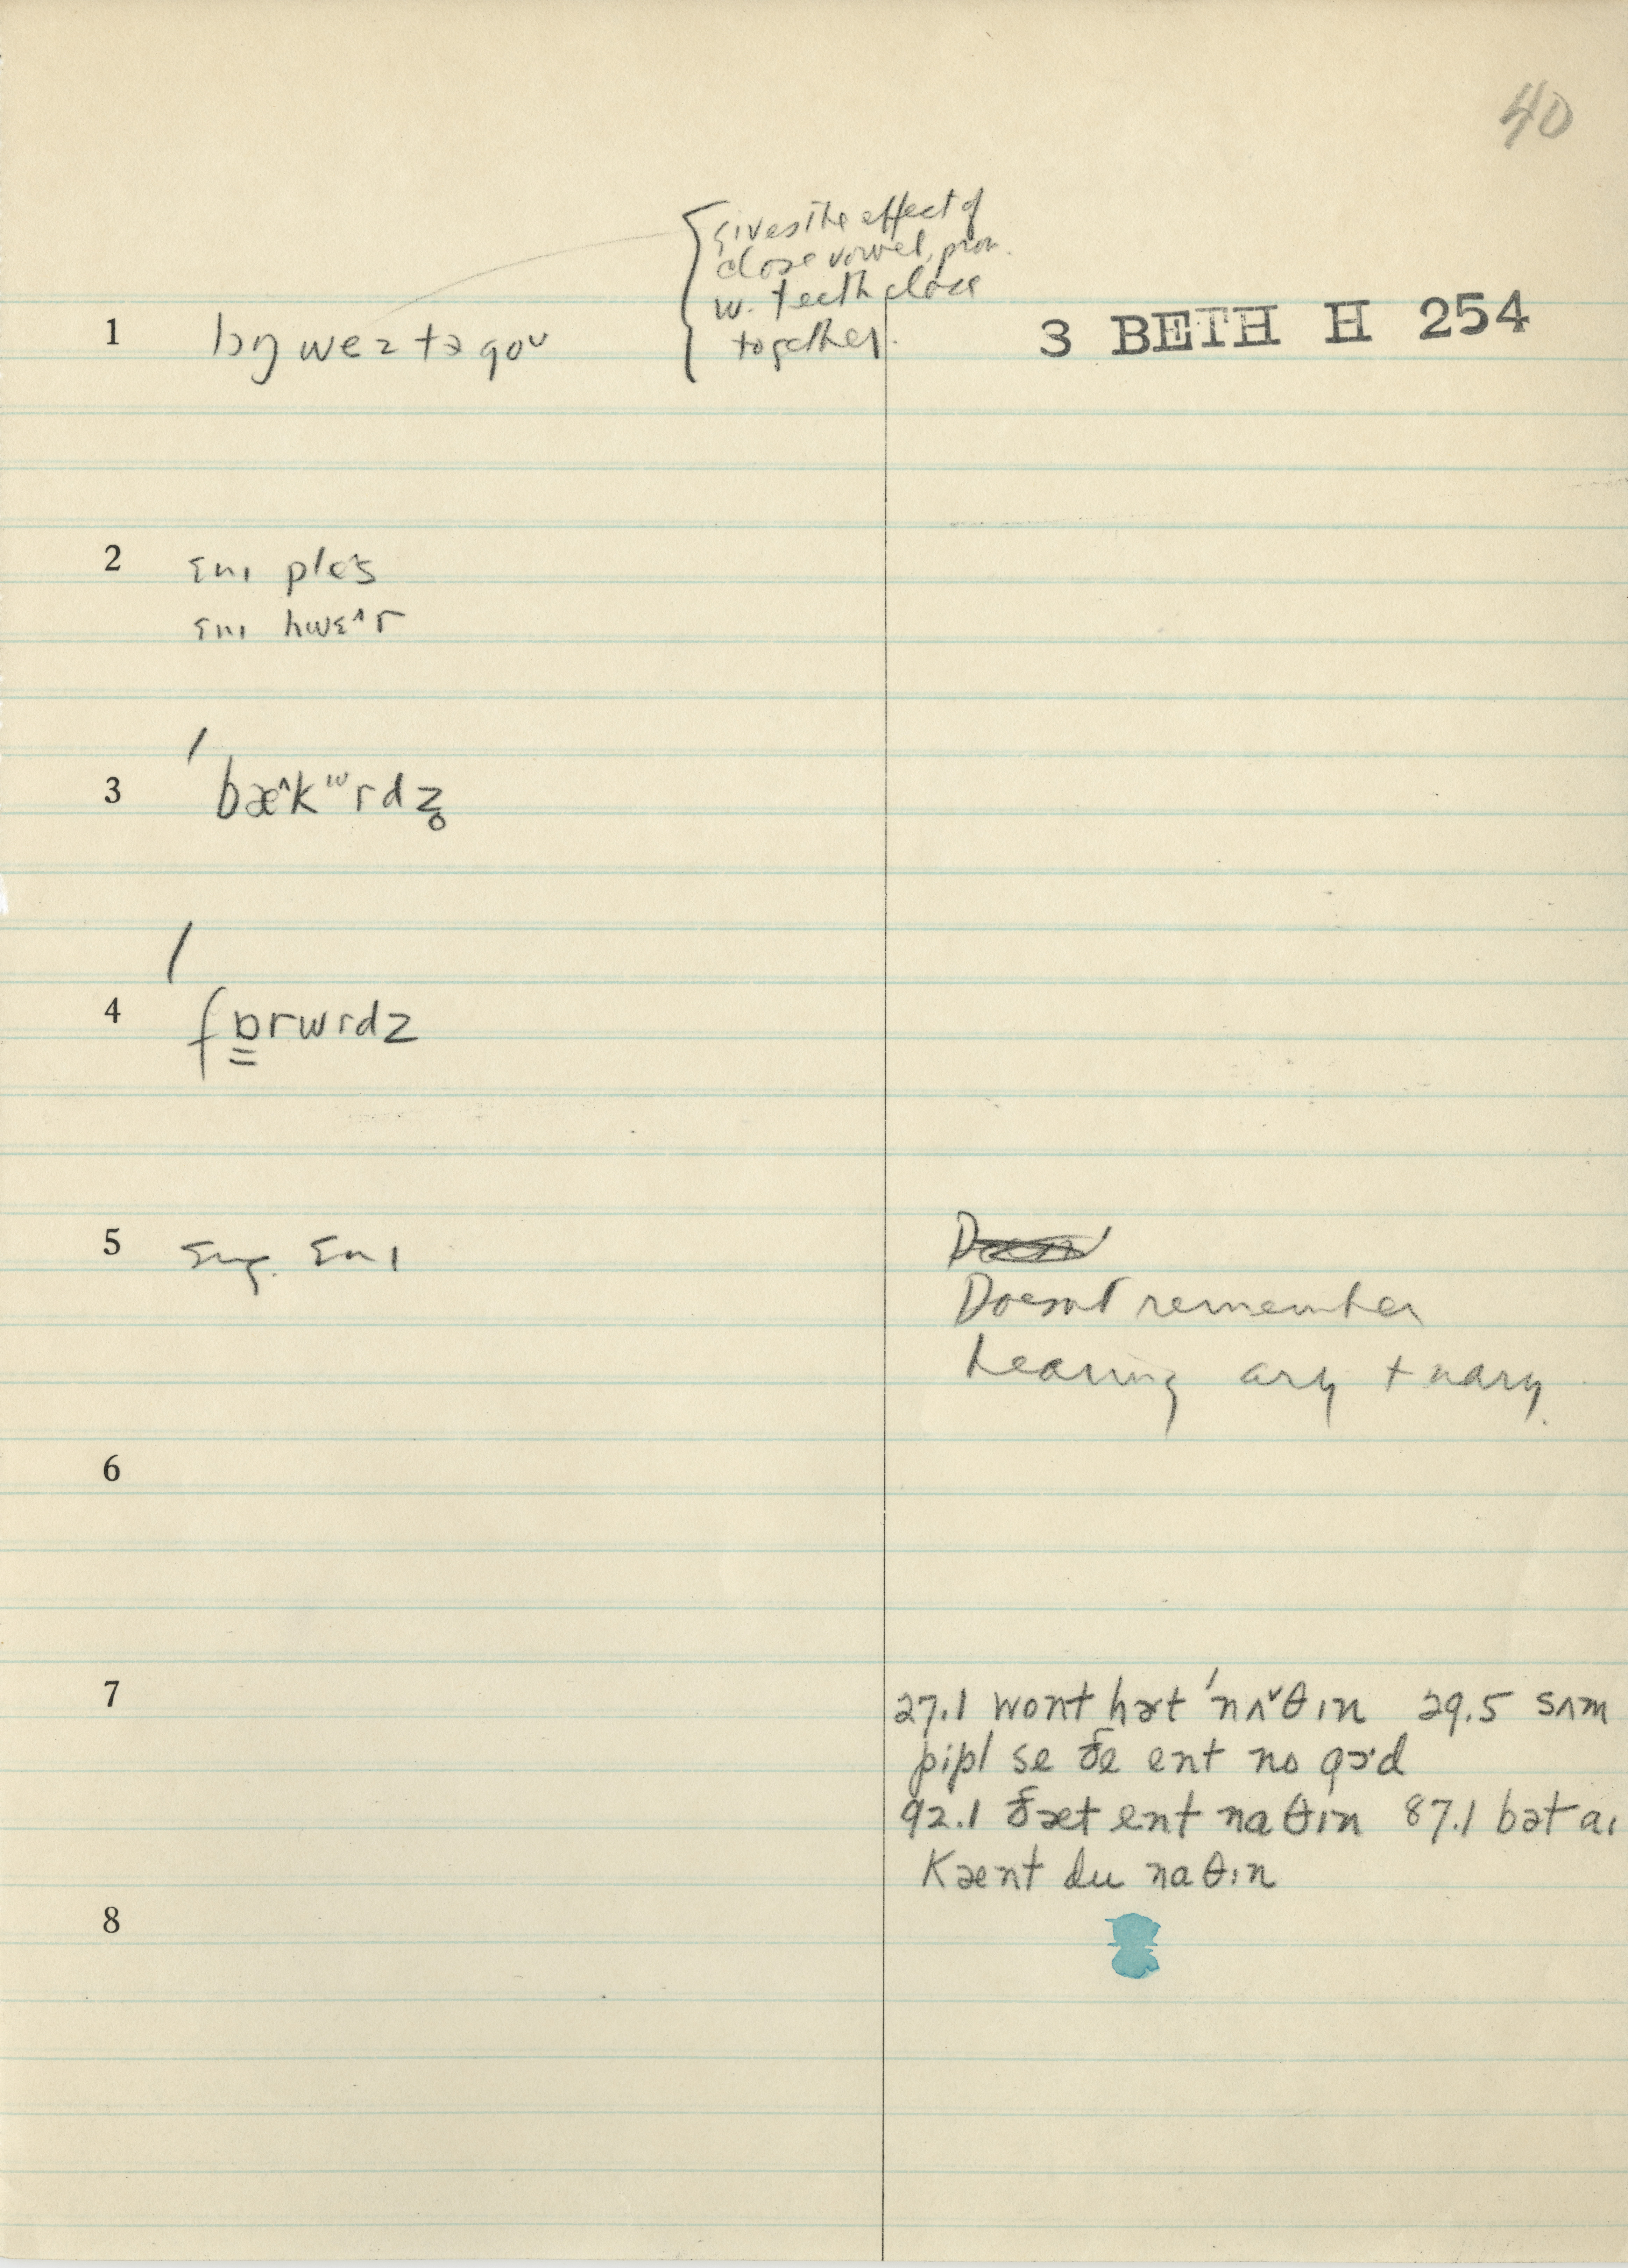 40
Gives the effect of
close vowel, pron.
w. teeth close
together.
3 BETH H 254
1 lɔŋ wez tə goᴜ
2 ɛnɪ ples
ɛnɪ hwɛ^r
3 / bæ^kʷrdz̥
4 / fɒ̳rwrdz
5 sug. ɛnɪ
Doesnt remember
hearing ary + nary.
6
7 27.1 wont hɚt 'nʌ˅θɪn 29.5 sʌm
pipl se ðe ent no gɔd
92.1 ðæt ent naθɪn 87.1 bət aɪ
Kænt du naθɪn
8